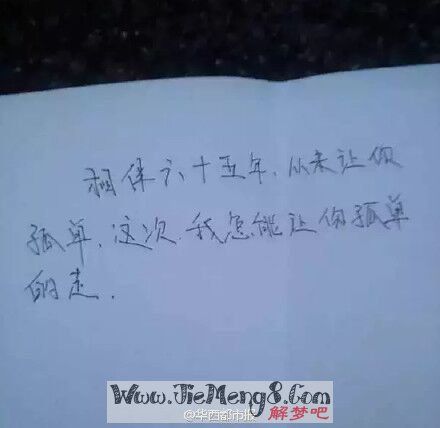 相伴六十五年,从来让你
孤单,这次,我怎能让你孤单
的走.
Www.JieMeng8.Com
@华西都市报
解梦吧